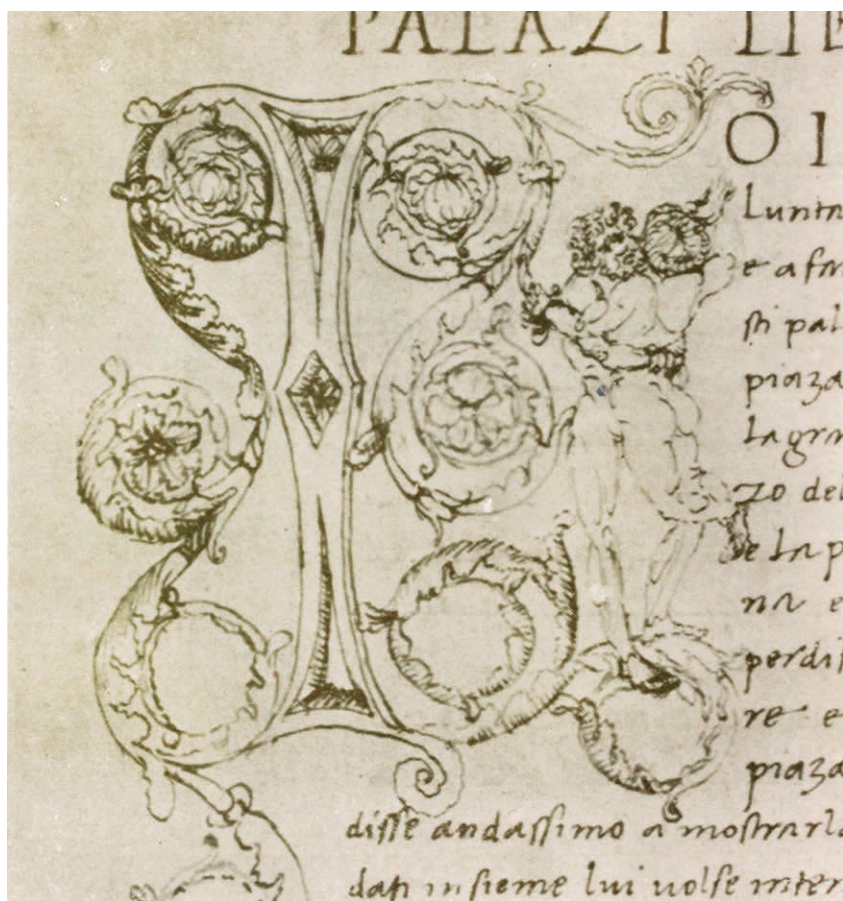 PALAZI
OI
Lunta
e a far
sti pal
piaza
la gran
zo del
e la p
na e
perdit
re e
piaza
disse andassimo a mostrarla
dati insieme lui uolse inten